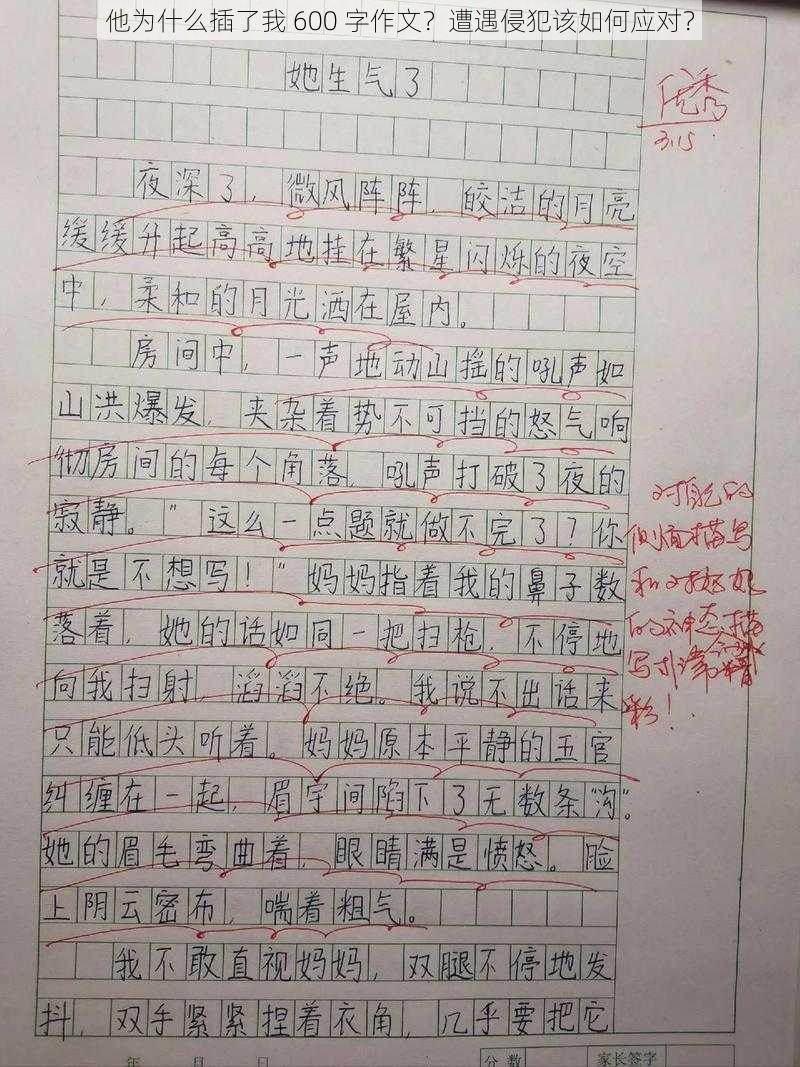 他为什么插了我 600 字作文？遭遇侵犯该如何应对？
她生气了
优秀
3.15
夜深了，微风阵阵，皎洁的月亮
缓缓升起高高地挂在繁星闪烁的夜空
中，柔和的月光洒在屋内。
房间中，一声地动山摇的吼声如
山洪爆发，夹杂着势不可挡的怒气响
彻房间的每个角落，吼声打破了夜的
寂静。"这么一点题就做不完了？你
就是不想写！"妈妈指着我的鼻子数
落着，她的话如同一把扫枪，不停地
向我扫射，滔滔不绝。我说不出话来
只能低头听着。妈妈原本平静的五官
纠缠在一起，眉宇间陷下了无数条"沟"。
她的眉毛弯曲着，眼睛满是愤怒。脸
上阴云密布，喘着粗气。
我不敢直视妈妈，双腿不停地发
抖，双手紧紧捏着衣角，几乎要把它
侧面描写
和对妈妈
的神态描
写非常精
彩！
年 月 日 分数 家长签字